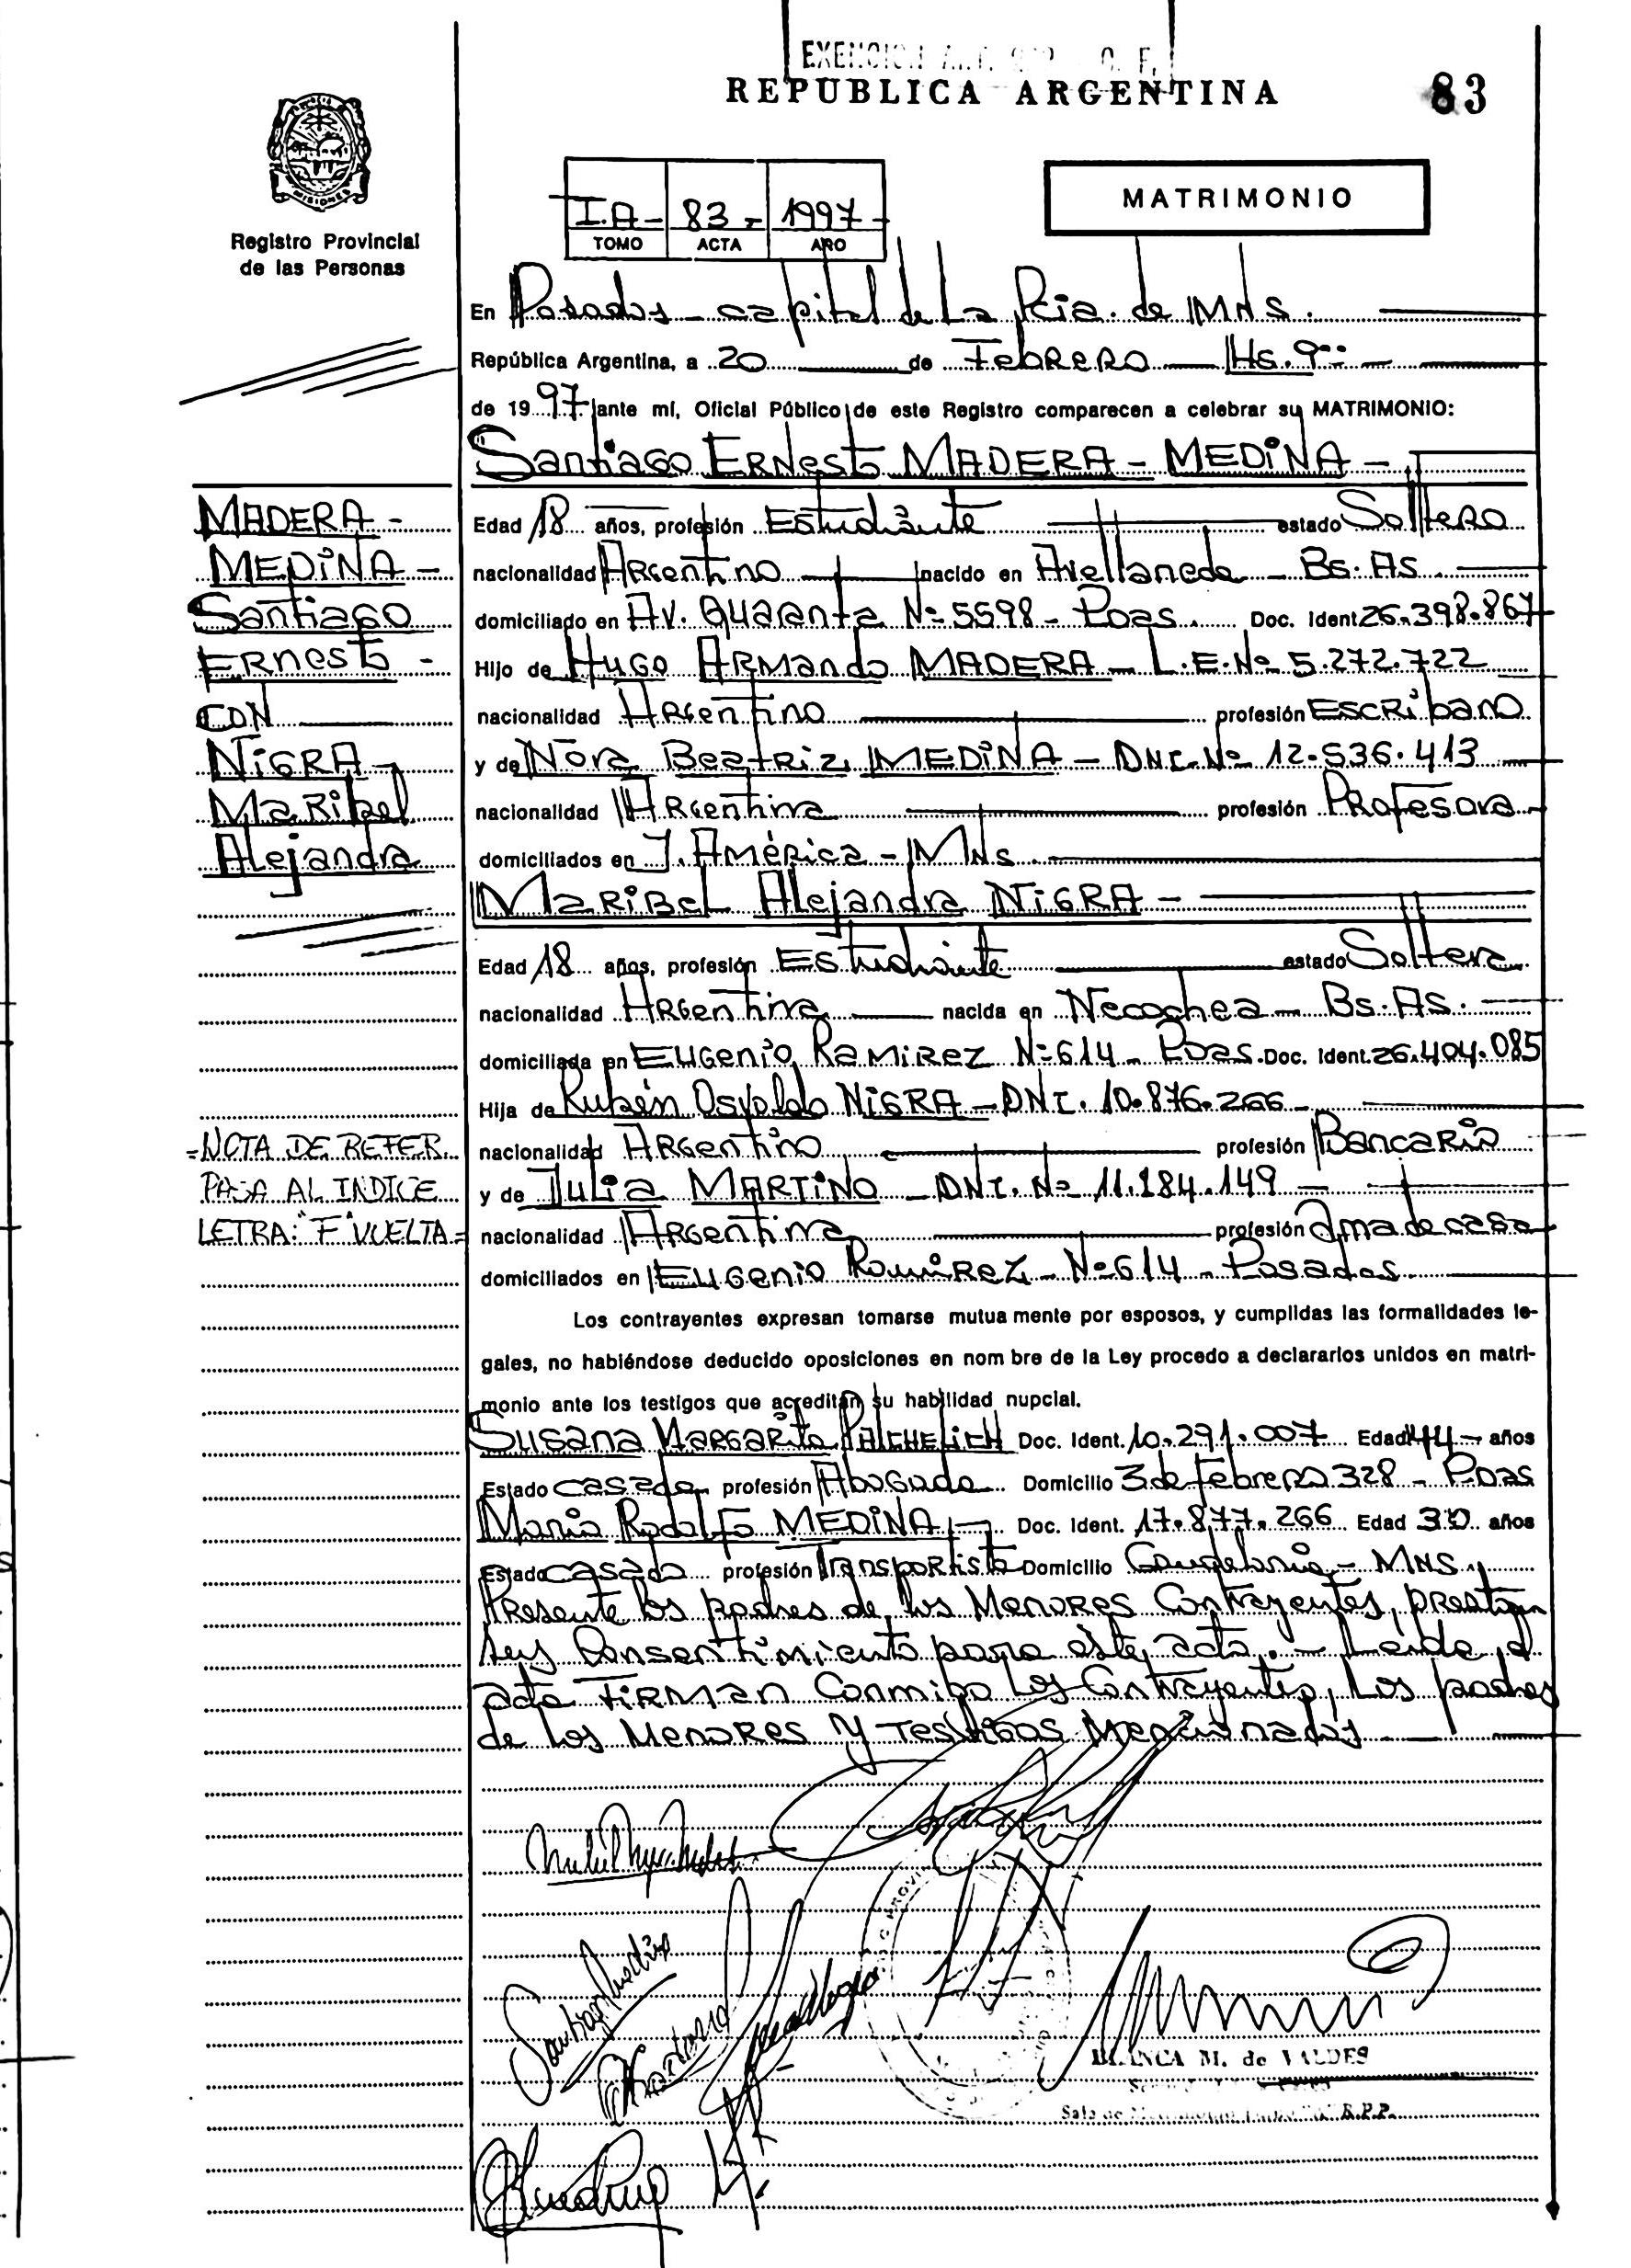 REPUBLICA ARGENTINA
83
MISIONES
Registro Provincial
de las Personas
I.A- 83- 1997-
TOMO ACTA AÑO
MATRIMONIO
En Posadas - capital de La Pcia. de MNS.
República Argentina, a 20 de FebRERO - Hs. 9
de 1997 ante mí, Oficial Público de este Registro comparecen a celebrar su MATRIMONIO:
Santiago ERNesto MADERA - MEDiNA -
MADERA -
MEDiNA -
Santiago
ERNesto -
CON
NiGRA -
MaRibel
Alejandra
Edad 18 años, profesión Estudiante estado Soltero
nacionalidad ARgentino nacido en Avellaneda - Bs. As.
domiciliado en AV. Quaranta Nº 5598 - Poas. Doc. Ident. 26.398.867
Hijo de Hugo ARMando MADERA - L.E. Nº 5.272.722
nacionalidad ARgentino profesión ESCRibano
y de Nora Beatriz MEDiNA - DNI. Nº 12.536.413
nacionalidad ARgentina profesión PRofesora
domiciliados en J. América - MNS.
MaRiBeL Alejandra NiGRA -
Edad 18 años, profesión Estudiante estado Soltera
nacionalidad ARgentina nacida en Necochea - Bs. AS.
domiciliada en Eugenio RaMiRez Nº 614 - Poas. Doc. Ident. 26.404.085
Hija de Rubén Osvaldo NiGRA - DNI. 10.876.266 -
nacionalidad ARgentino profesión BancaRio
y de Julia MARTiNO - DNI. Nº 11.184.149 -
nacionalidad ARgentina profesión Ama de casa
domiciliados en Eugenio RamiRez - Nº 614 - Posadas
=NOTA DE REFER.
PASA AL INDICE
LETRA: "F" VUELTA=
Los contrayentes expresan tomarse mutua mente por esposos, y cumplidas las formalidades le-
gales, no habiéndose deducido oposiciones en nom bre de la Ley procedo a declararlos unidos en matri-
monio ante los testigos que acreditan su habilidad nupcial.
Susana MaRgaRita PALCHEVICH Doc. Ident. 10.291.007 Edad 44 - años
Estado casada profesión Abogada Domicilio 3 de Febrero 328 - Poas
Mario Rodolfo MEDiNA - Doc. Ident. 17.877.266 Edad 30 años
Estado casado profesión TRanspoRtista Domicilio Candelaria - MNS.
PResente los padres de los MenoRes ContRayentes, prestan
su consentimiento para este acto. - Leída el
acta FiRMan Conmigo Los ContRayentes, Los padres
de los MenoRes Y Testigos Mencionados
BLANCA M. de VALDES
R.P.P.